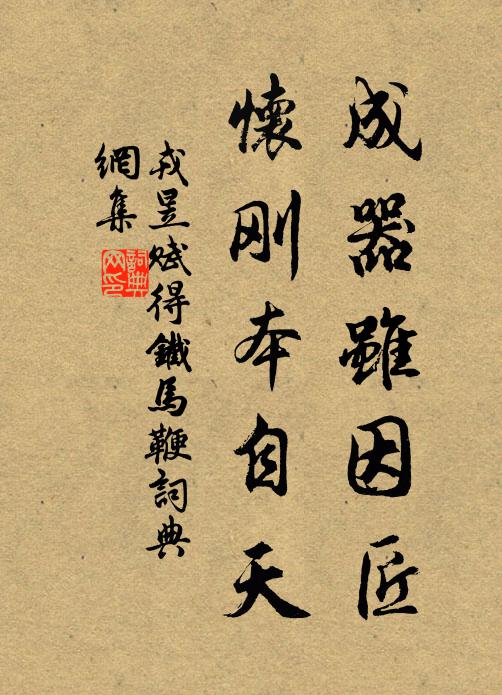 成器雖因匠
懷剛本自天
戎昱賦得鐵馬鞭詞典
網集
詞典
网印